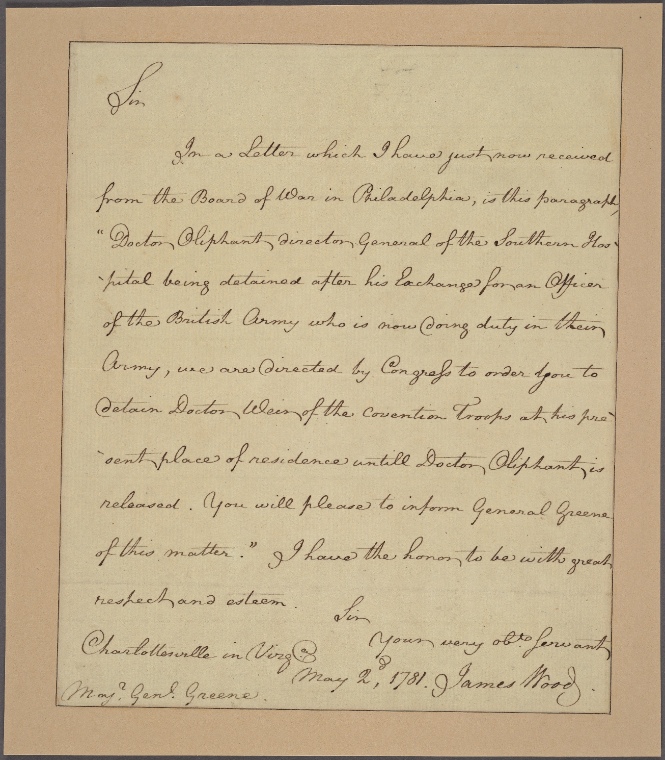 Sir
In a Letter which I have just now received
from the Board of War in Philadelphia, is this paragraph,
"Doctor Oliphant director General of the Southern Hos-
-pital being detained after his Exchange for an Officer
of the British Army who is now doing duty in their
Army, we are directed by Congress to order you to
detain Doctor Weir of the Covention Troops at his pre-
-sent place of residence untill Doctor Oliphant is
released. You will please to inform General Greene
of this matter." I have the honor to be with great
respect and esteem.
Sir
Your very obt. Servant
Charlottesville in Virga.
May 2d, 1781. James Wood.
Majr. Genl. Greene.